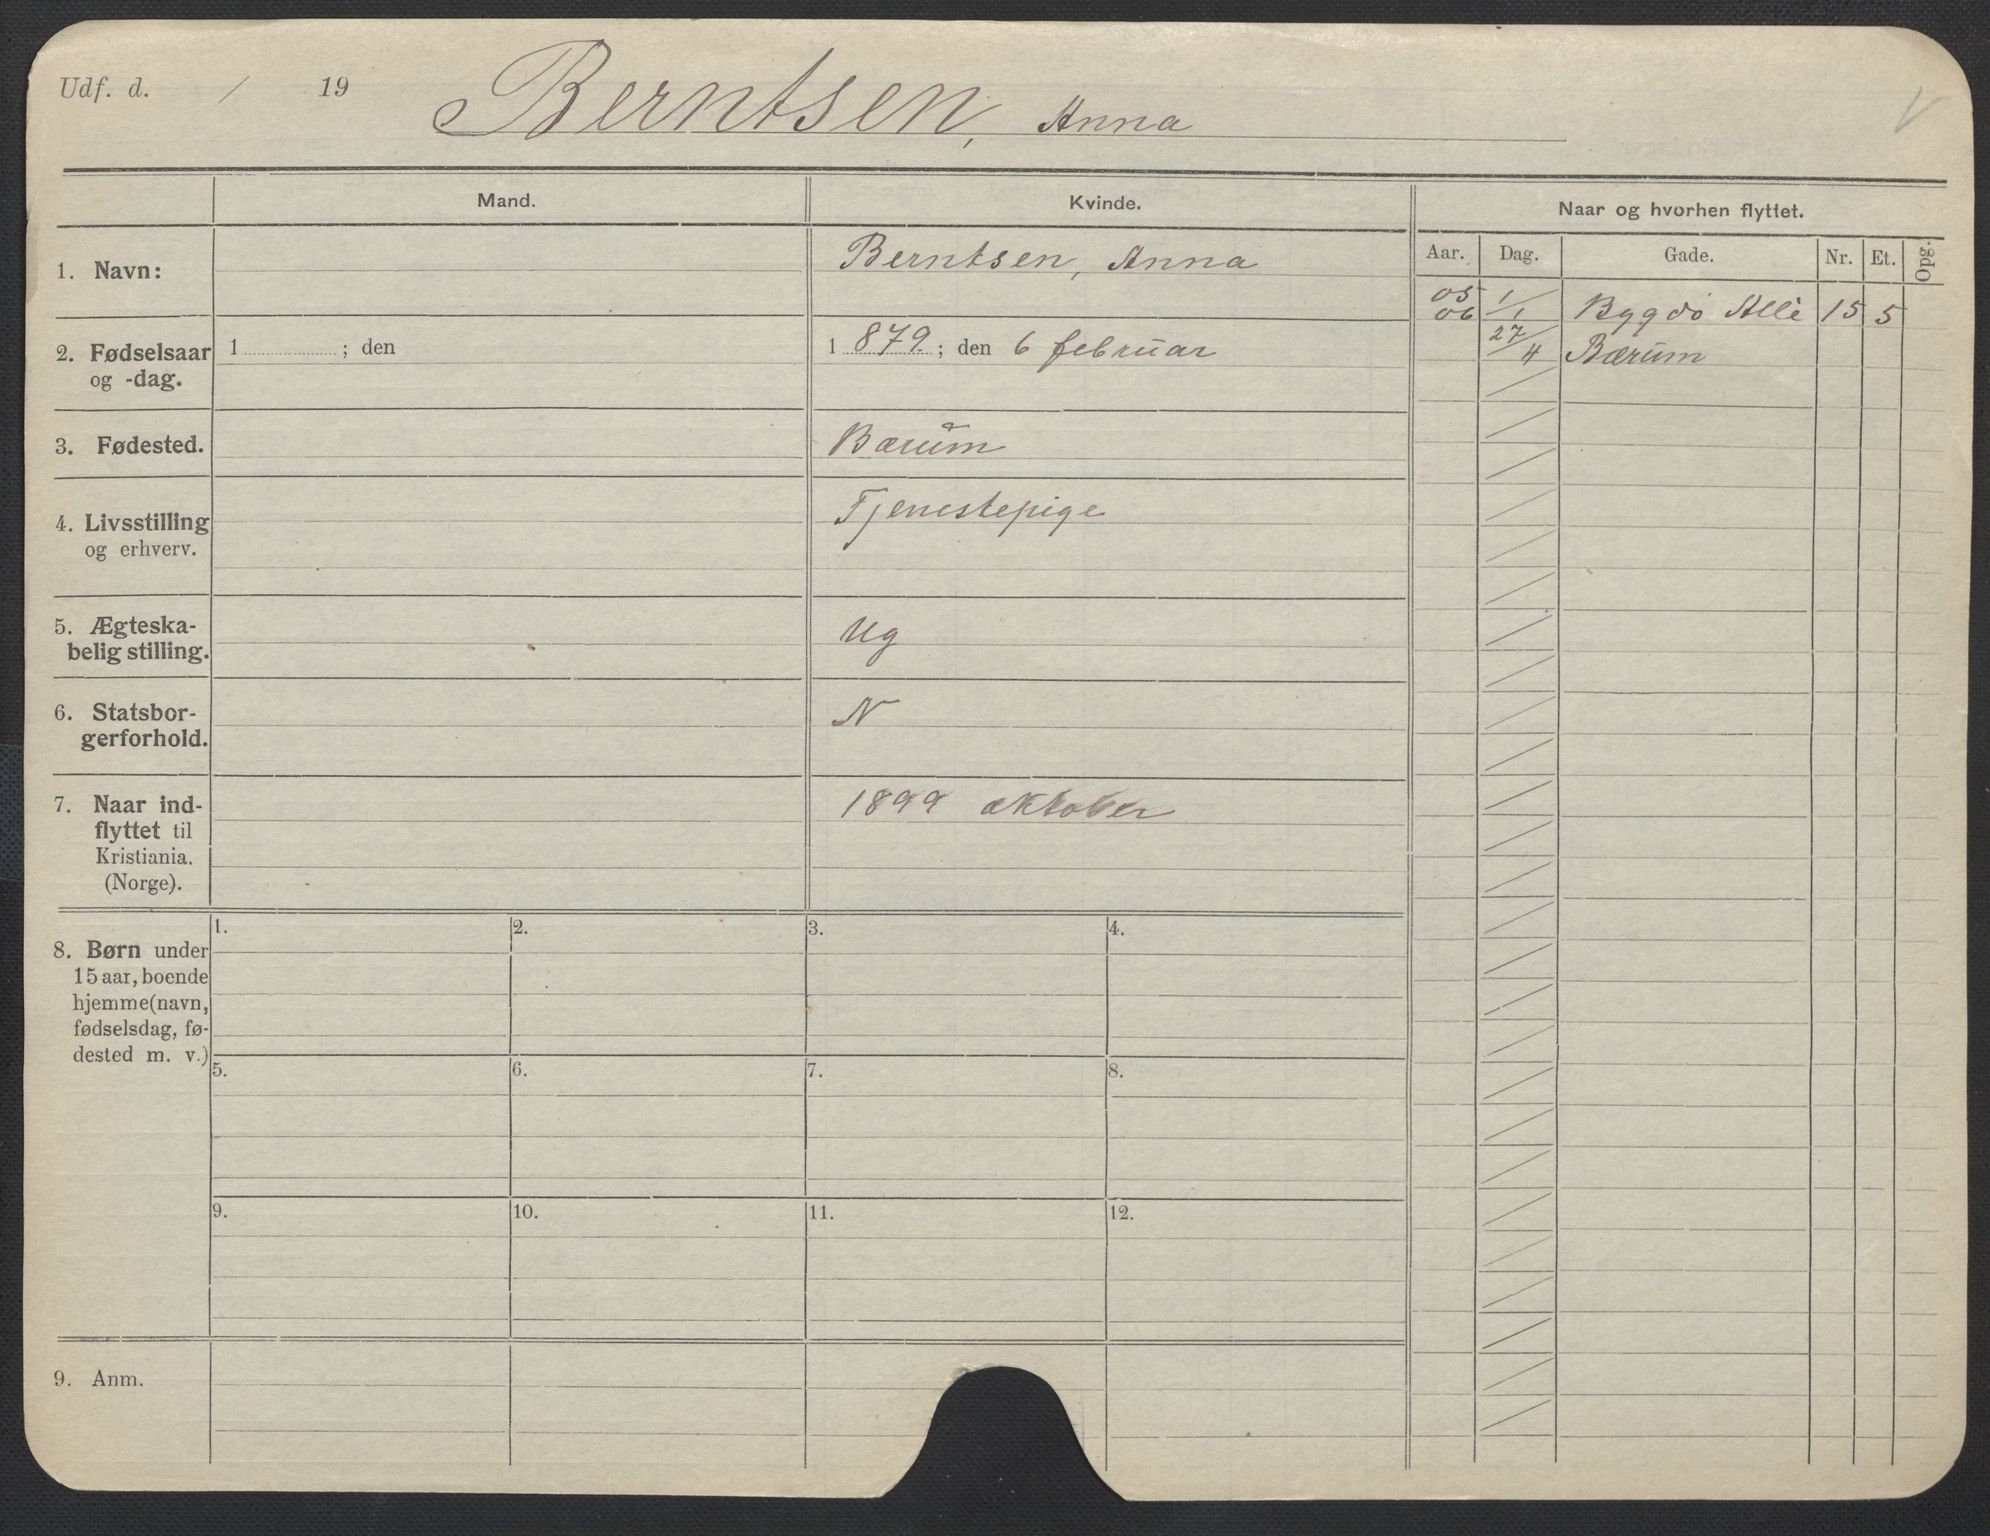 Udf. d. / 19 Berntsen, Anna
Mand. Kvinde. Naar og hvorhen flyttet.
Aar. Dag. Gade. Nr. Et. Opg.
1. Navn: Berntsen, Anna
05 1/1 Bygdø Allè 15 5
06 27/4 Bærum
2. Fødselsaar
og -dag.
1 ; den
1 879. ; den 6 februar
3. Fødested. Bærum
4. Livsstilling
og erhverv.
Tjenestepige
5. Ægteska-
belig stilling.
Ug
6. Statsbor-
gerforhold.
N
7. Naar ind-
flyttet til
Kristiania.
(Norge).
1899 oktober
8. Børn under
15 aar, boende
hjemme (navn,
fødselsdag, fø-
dested m. v.)
1. 2. 3. 4.
5. 6. 7. 8.
9. 10. 11. 12.
9. Anm.